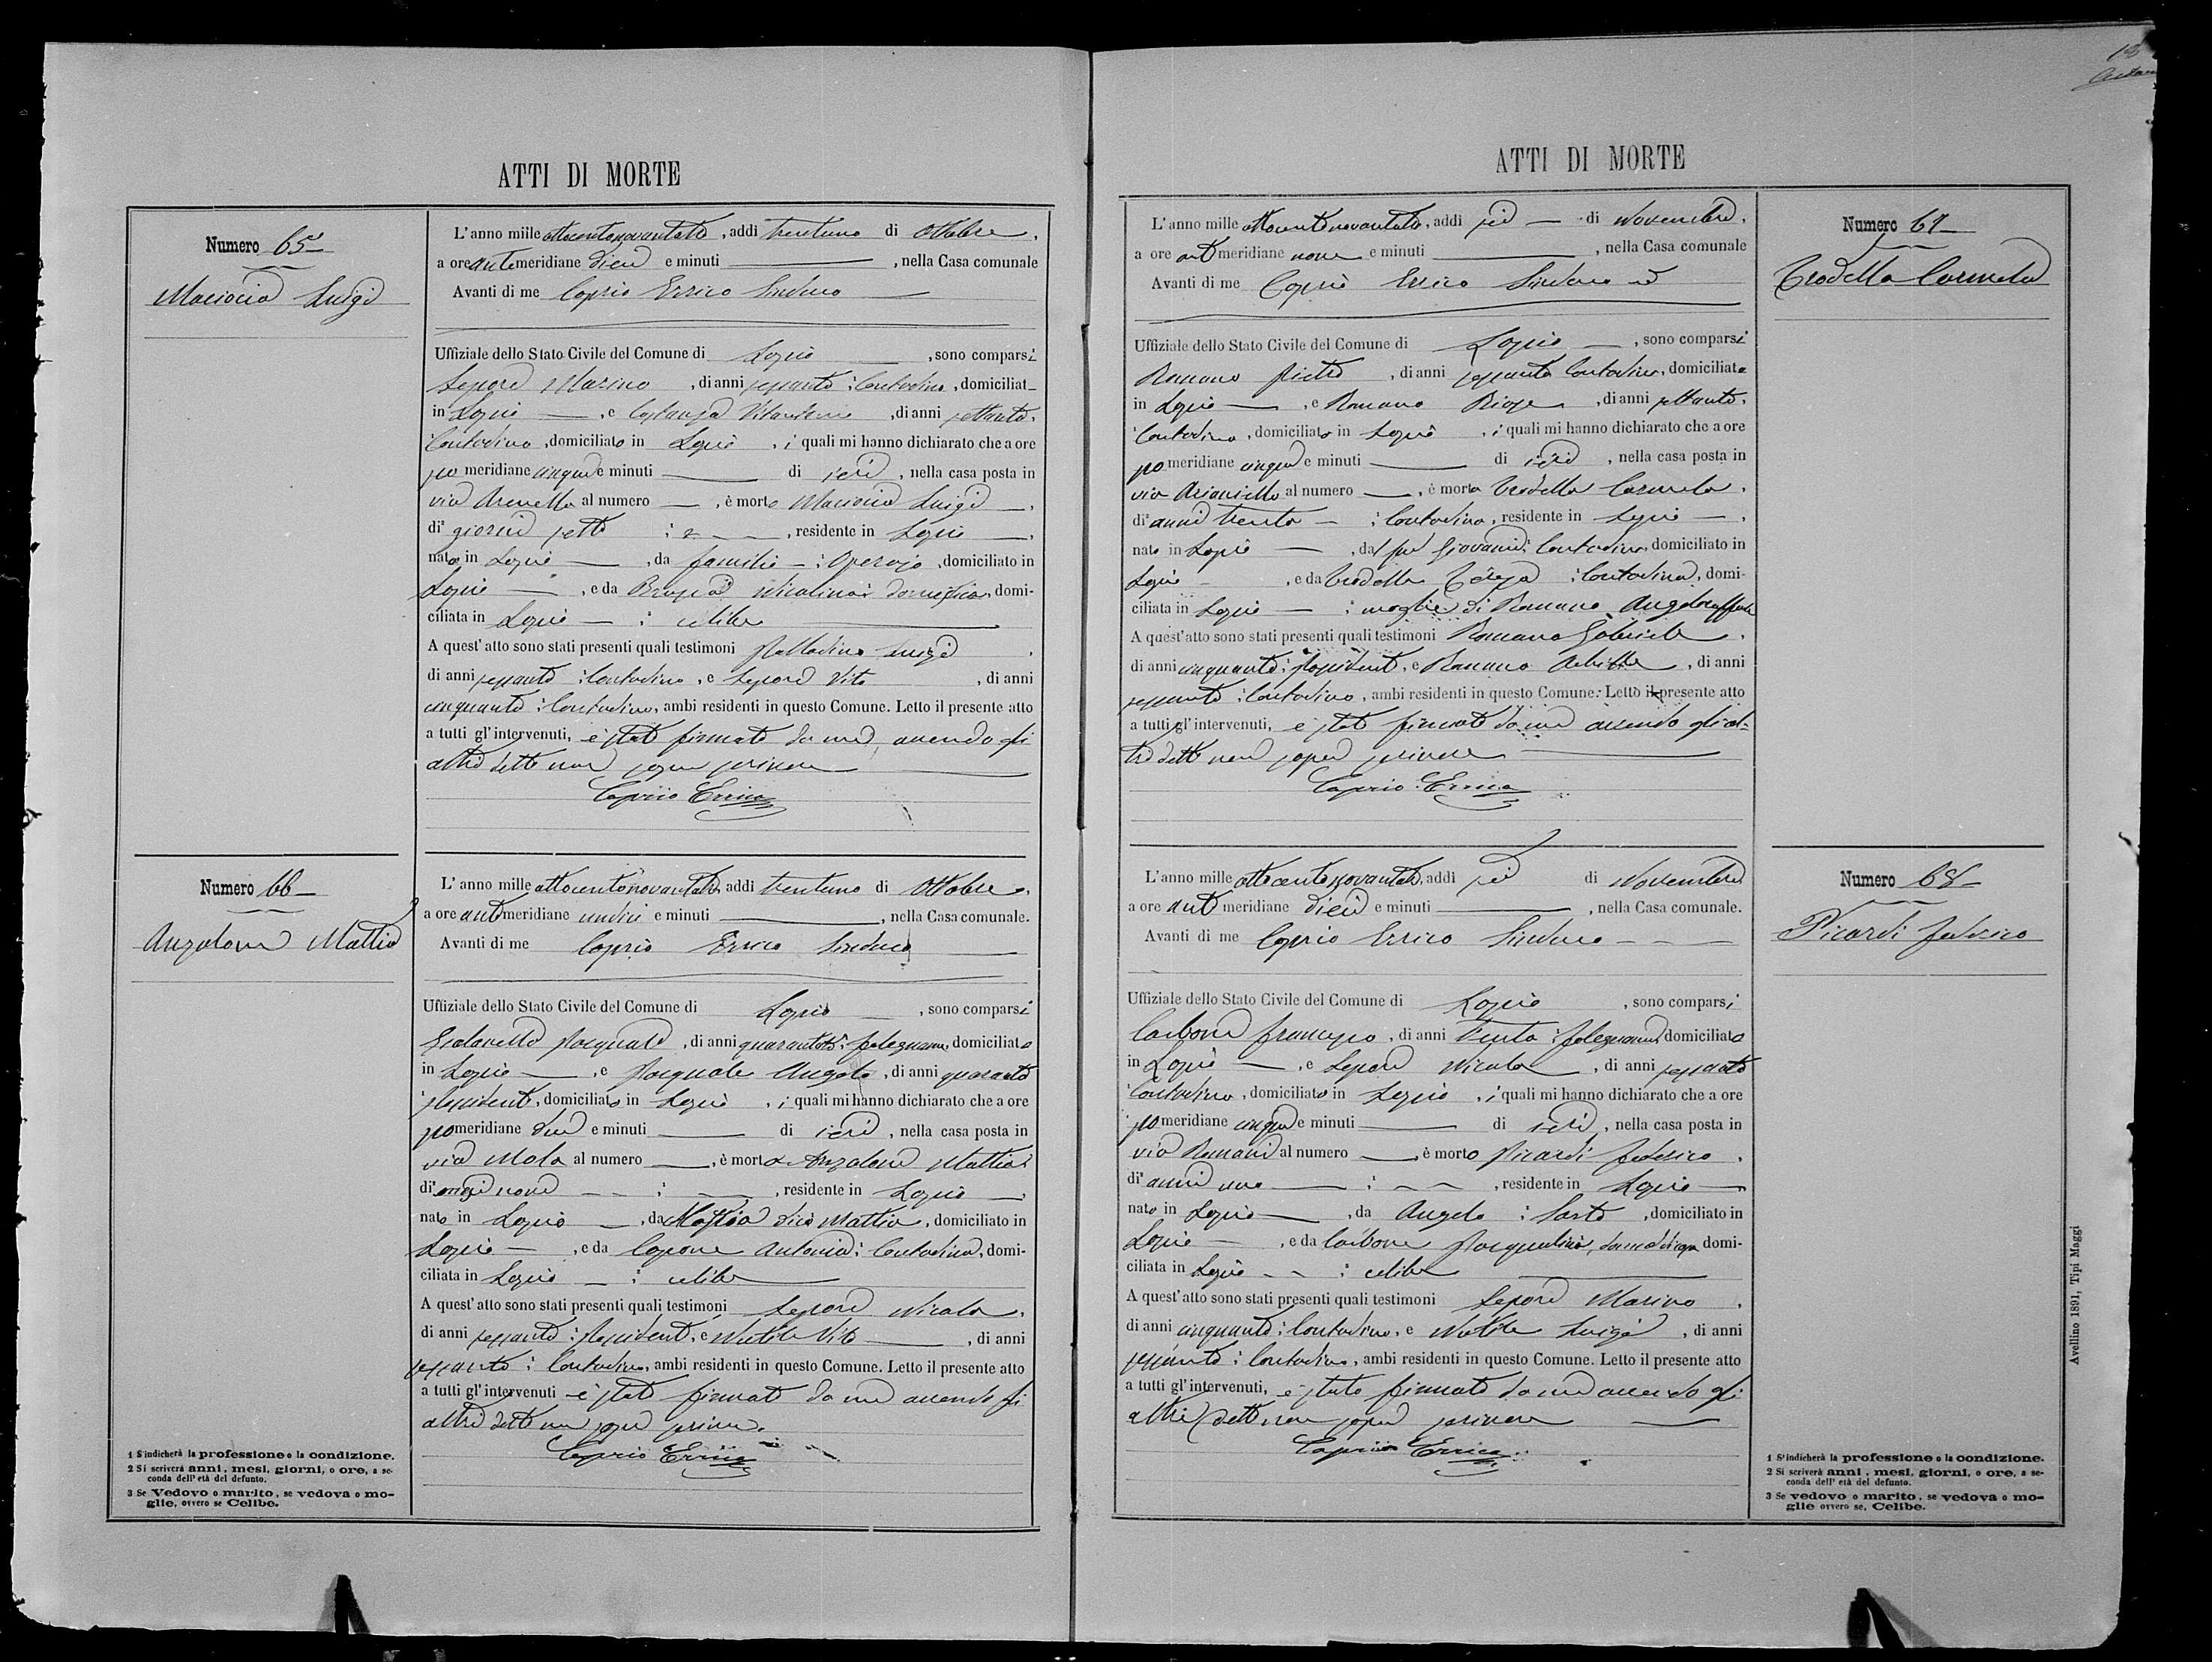 ATTI DI MORTE
Numero 65
Maciocia Luigi
L'anno mille ottocentonovantotto, addì trentuno di Ottobre,
a ore antimeridiane dieci e minuti, nella Casa comunale
Avanti di me Caprio Errico Sindaco
Uffiziale dello Stato Civile del Comune di Lapio, sono comparsi
Lepore Marino, di anni sessanta; Contadino, domiciliat
in Lapio, e Costanza, di anni settanta,
Contadino, domiciliato in Lapio, i quali mi hanno dichiarato che a ore
po meridiane cinque e minuti di ieri, nella casa posta in
via Arenella al numero, è morto Maciocia Luigi,
di giorni sette, residente in Lapio,
nato in Lapio, da; Operajo, domiciliato in
Lapio, e da Nicolina; domestica, domi-
ciliata in Lapio; celibe
A quest'atto sono stati presenti quali testimoni Palladino Luigi
di anni sessanta; Contadino, e Lepore Vito, di anni
cinquanta; Contadino, ambi residenti in questo Comune. Letto il presente atto
a tutti gl'intervenuti, è stato firmato da me, avendo gli
altri detto non saper scrivere
Caprio Errico
Numero 66
Anzalone Mattia
L'anno mille ottocentonovantotto, addì trentuno di Ottobre,
a ore antimeridiane undici e minuti, nella Casa comunale.
Avanti di me Caprio Errico Sindaco
Uffiziale dello Stato Civile del Comune di Lapio, sono comparsi
Pasquale, di anni; falegname, domiciliato
in Lapio, e Pasquale Angelo, di anni quaranta
possidente, domiciliato in Lapio, i quali mi hanno dichiarato che a ore
po meridiane due e minuti di ieri, nella casa posta in
via Mola al numero, è morto Anzalone Mattia
di mesi nove, residente in Lapio,
nato in Lapio, da dico Mattia, domiciliato in
Lapio, e da Capone Antonia; Contadina, domi-
ciliata in Lapio; celibe
A quest'atto sono stati presenti quali testimoni Lepore Nicola,
di anni sessanta; possidente, e Vito, di anni
sessanta; Contadino, ambi residenti in questo Comune. Letto il presente atto
a tutti gl'intervenuti è stato firmato da me avendo gli
altri detto non saper scrivere.
Caprio Errico
1 S'indicherà la professione o la condizione.
2 Si scriverà anni, mesi, giorni, o ore, a se-
conda dell'età del defunto.
3 Se Vedovo o marito, se vedova o mo-
glie, ovvero se Celibe.
ATTI DI MORTE
Numero 67
Trodella Carmela
L'anno mille ottocentonovantotto, addì sei di Novembre,
a ore ant meridiane nove e minuti, nella Casa comunale
Avanti di me Caprio Errico Sindaco
Uffiziale dello Stato Civile del Comune di Lapio, sono comparsi
Romano Pietro, di anni sessanta Contadino, domiciliato
in Lapio, e Romano, di anni settanta,
Contadino, domiciliato in Lapio, i quali mi hanno dichiarato che a ore
po meridiane cinque e minuti di ieri, nella casa posta in
via Arianiello al numero, è morta Trodella Carmela,
di anni trenta; Contadina, residente in Lapio,
nata in Lapio, dal fu Giovanni; Contadino, domiciliato in
Lapio, e da Trodella Teresa; Contadina, domi-
ciliata in Lapio; moglie di Romano Angeloraffaele
A quest'atto sono stati presenti quali testimoni Romano Gabriele,
di anni cinquanta; possidente, e Romano Achille, di anni
sessanta; Contadino, ambi residenti in questo Comune. Letto il presente atto
a tutti gl'intervenuti, è stato firmato da me avendo gli al-
tri detto non saper scrivere
Caprio Errico
Numero 68
Picardi Federico
L'anno mille ottocentonovantotto, addì sei di Novembre
a ore ant meridiane dieci e minuti, nella Casa comunale.
Avanti di me Caprio Errico Sindaco
Uffiziale dello Stato Civile del Comune di Lapio, sono comparsi
Carbone Francesco, di anni trenta; falegname, domiciliato
in Lapio, e Lepore Nicola, di anni sessanta
Contadino, domiciliato in Lapio, i quali mi hanno dichiarato che a ore
po meridiane cinque e minuti di ieri, nella casa posta in
via Romani al numero, è morto Picardi Federico,
di anni uno, residente in Lapio
nato in Lapio, da Angelo; Sarto, domiciliato in
Lapio, e da Carbone Pasqualina, domestica, domi-
ciliata in Lapio; celibe
A quest'atto sono stati presenti quali testimoni Lepore Marino,
di anni cinquanta; Contadino, e Luigi, di anni
sessanta; Contadino, ambi residenti in questo Comune. Letto il presente atto
a tutti gl'intervenuti, è stato firmato da me avendo gli
altri detto non saper scrivere
Caprio Errico
1 S'indicherà la professione o la condizione.
2 Si scriverà anni, mesi, giorni, o ore, a se-
conda dell'età del defunto.
3 Se vedovo o marito, se vedova o mo-
glie ovvero se, Celibe.
Avellino 1891, Tipi Maggi